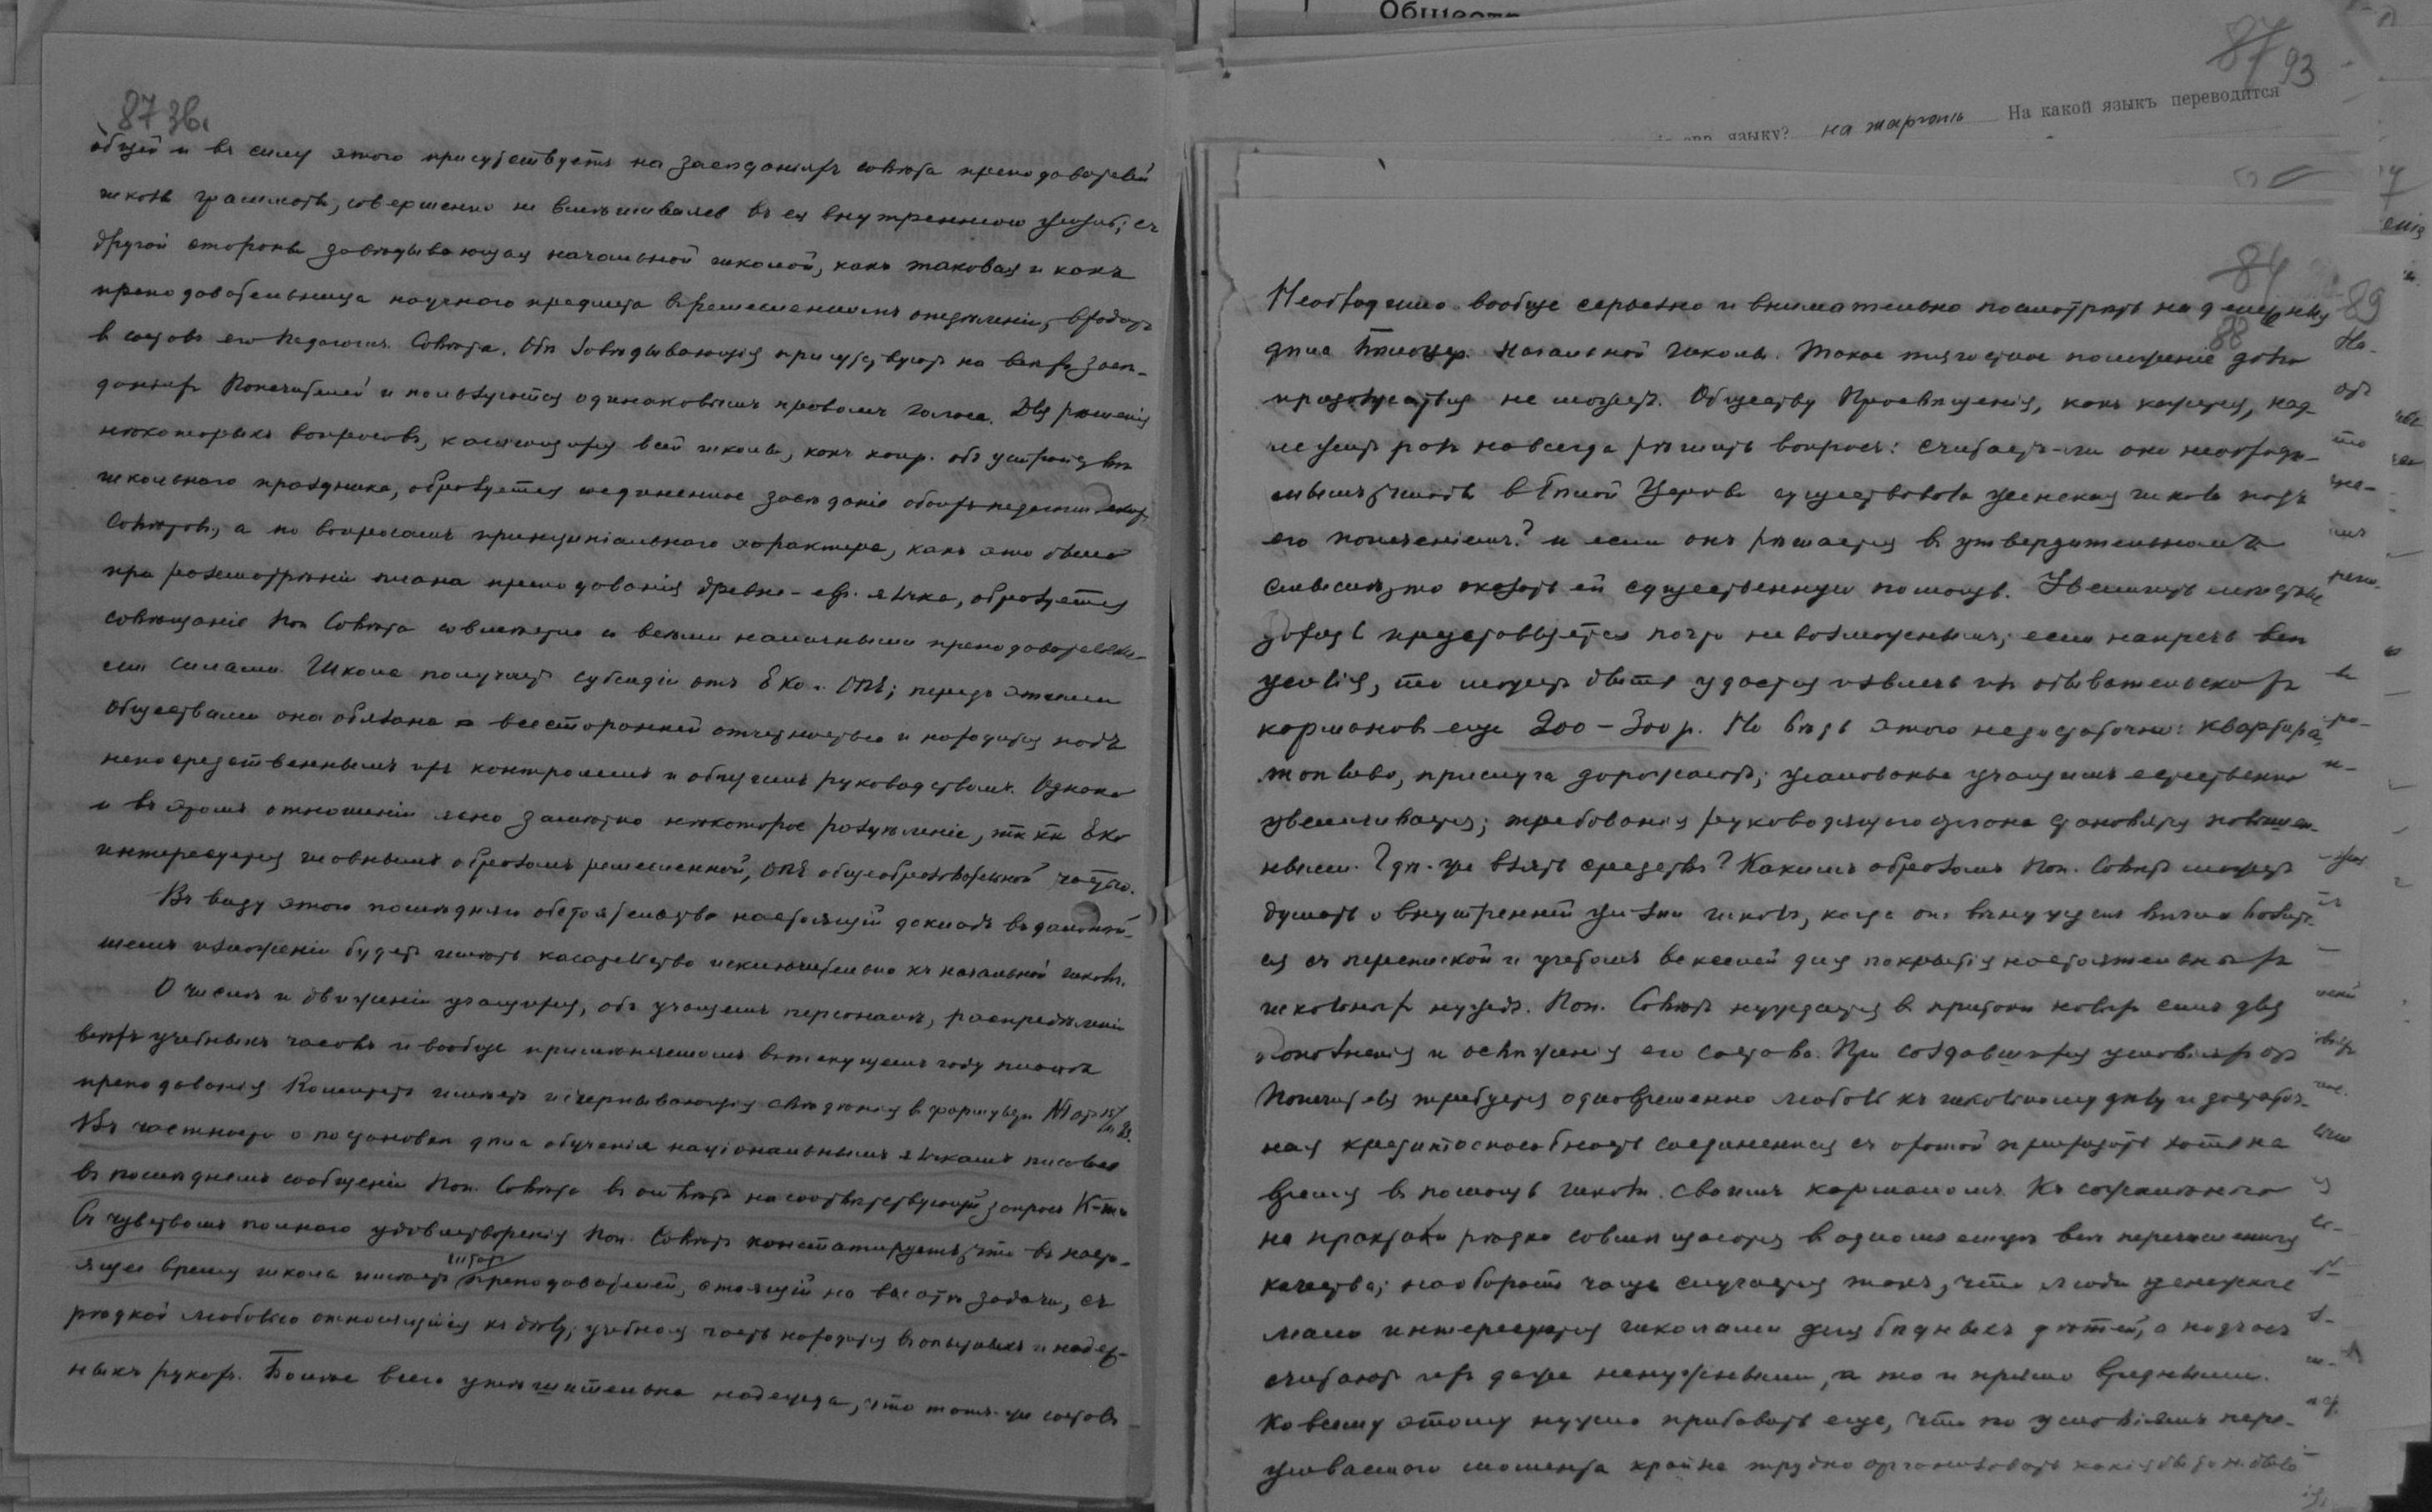 87 зв.
общей и въ силу этого присутствуетъ на засѣданіяхъ совѣта преподавателей
школы грамоты, совершенно не вмѣшиваясь въ ея внутреннюю жизнь; съ
другой стороны завѣдывающая начальной школой, какъ таковая и какъ
преподавательница научнаго предмета въ ремесленномъ отдѣленіи, входитъ
въ составъ его Педагогич. Совѣта. Обѣ завѣдывающія присутствуютъ на всѣхъ засѣ-
даніяхъ Попечителей и пользуются одинаковымъ правомъ голоса. Для рѣшенія
нѣкоторыхъ вопросовъ, касающихся всей школы, какъ напр. объ устройствѣ
школьнаго праздника, образуется соединенное засѣданіе обоихъ педагогическ.
Совѣтовъ, а по вопросамъ принципіальнаго характера, какъ это было
при разсмотрѣніи плана преподаванія древне-евр. языка, образуется
совѣщаніе Поп. Совѣта совмѣстно со всѣми наличными преподавательски-
ми силами. Школа получаетъ субсидіи отъ Еко и ОПЕ; передъ этими
обществами она обязана всесторонней отчетностью и находится подъ
непосредственнымъ ихъ контролемъ и общимъ руководствомъ. Однако
и въ этомъ отношеніи ясно замѣтно нѣкоторое раздѣленіе, тк кк Еко
интересуется главнымъ образомъ ремесленной, ОПЕ общеобразовательной частью.
Въ виду этого послѣдняго обстоятельства настоящій докладъ въ дальнѣй-
шемъ изложеніи будетъ имѣть касательство исключительно къ начальной школѣ.
О числѣ и движеніи учащихся, объ учащемъ персоналѣ, распредѣленіи
всѣхъ учебныхъ часовъ и вообще примѣняемомъ въ текущемъ году планѣ
преподаванія Комитетъ имѣетъ исчерпывающія свѣдѣнія въ формулярѣ
Въ частности о постановкѣ дѣла обученія національнымъ языкамъ писалось
въ послѣднемъ сообщеніи Поп. Совѣта въ отвѣтъ на соотвѣтствующій запросъ К-та
Съ чувствомъ полнаго удовлетворенія Поп. Совѣтъ констатируетъ, что въ насто-
ящее время школа имѣетъ штатъ преподавателей, стоящій на высотѣ задачи, съ
рѣдкой любовью относящійся къ дѣлу; учебная часть находится въ опытныхъ и надеж-
ныхъ рукахъ. Болѣе всего утѣшительна надежда, что тотъ-же составъ
Обществ
87 93
евр. языку? на жаргонъ На какой языкъ переводится
84 89
88
Необходимо вообще серьезно и внимательно посмотрѣть на денежныя
дѣла Бѣлоцер. начальной школы. Такое тягостное положеніе долго
продолжаться не можетъ. Обществу Просвѣщенія, какъ кажется, над-
лежитъ разъ навсегда рѣшить вопросъ: считаетъ-ли оно необходи-
мымъ, чтобы въ Бѣлой Церкви существовала женская школа подъ
его попеченіемъ? и если онъ рѣшается въ утвердительномъ
смыслѣ, то оказать ей существенную помощь. Увеличить мѣстные
доходы представляется почти невозможнымъ; если напречь всѣ
усилія, то можетъ быть удастся извлечь изъ обывательскихъ
кармановъ еще 200-300 р. Но вѣдь этого недостаточно: квартира,
топливо, прислуга дорожаютъ; жалованье учащимъ естественно
увеличивается; требованія руководящаго органа становятся повышен-
ными. Гдѣ-же взять средства? Какимъ образомъ Поп. Совѣтъ можетъ
думать о внутренней жизни школы, когда онъ вынужденъ вѣчно возить-
ся съ перепиской и учетомъ векселей для покрытія настоятельныхъ
школьныхъ нуждъ. Поп. Совѣтъ нуждается въ притокѣ новыхъ силъ для
пополненія и освѣженія его состава. При создавшихся условіяхъ отъ
Попечителя требуется одновременно любовь къ школьному дѣлу и достаточ-
ная кредитоспособность соединенная съ охотой приходить хотя на
время въ помощь школѣ своимъ карманомъ. Къ сожалѣнію
на практикѣ рѣдко совмѣщаются въ одномъ лицѣ всѣ перечисленныя
качества; наоборотъ чаще случается такъ, что люди денежные
мало интересуются школами для бѣдныхъ дѣтей, а подчасъ
считаютъ ихъ даже ненужными, а то и прямо вредными.
Ко всему этому нужно прибавить еще, что по условіямъ пере-
живаемаго момента крайне трудно организовать какія бы то ни было